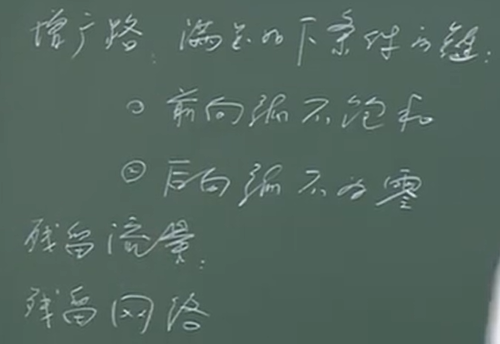 增广路:满足如下条件的链:
○ 前向弧不饱和
○ 后向弧不为零
残留流量:
残留网络